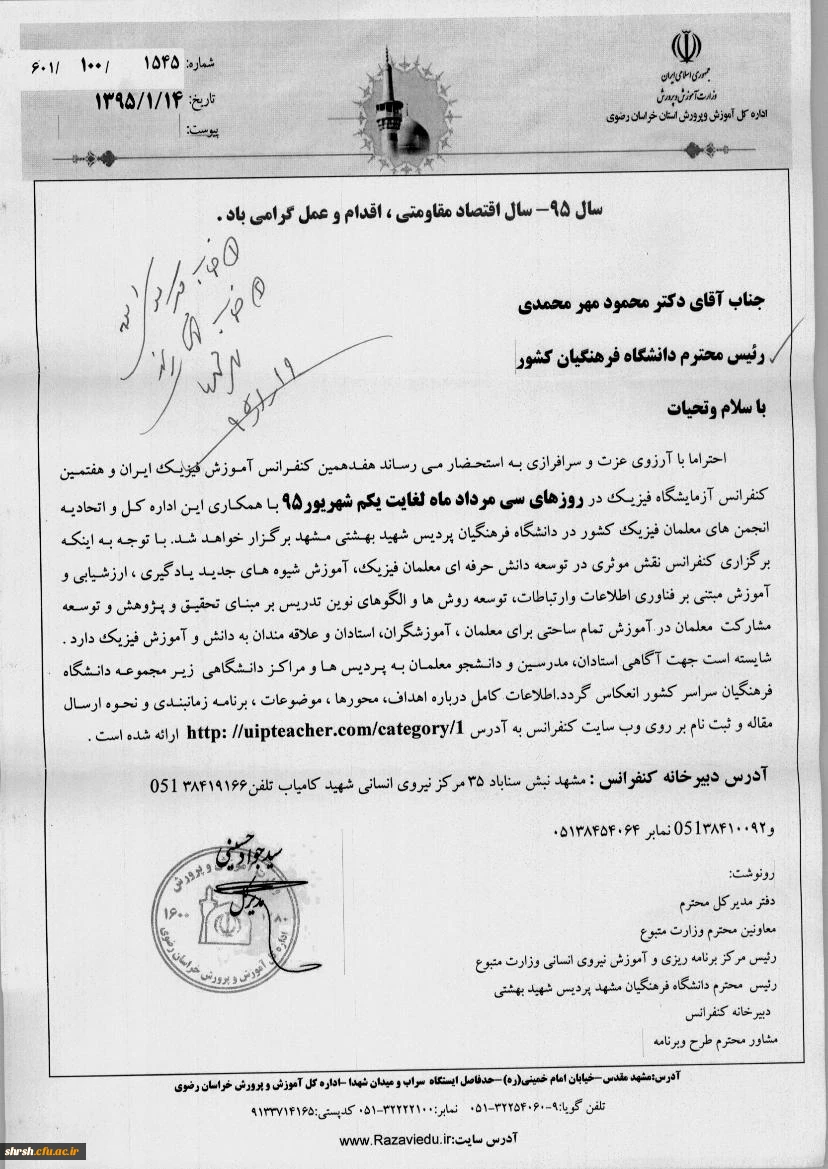 جمهوری اسلامی ایران
وزارت آموزش و پرورش
اداره کل آموزش وپرورش استان خراسان رضوی
شماره: ۱۵۴۵ /۱۰۰ /۶۰۱
تاریخ: ۱۳۹۵/۱/۱۴
پیوست:
سال ۹۵- سال اقتصاد مقاومتی ، اقدام و عمل گرامی باد .
جناب آقای دکتر محمود مهر محمدی
رئیس محترم دانشگاه فرهنگیان کشور
با سلام وتحیات
احتراما با آرزوی عزت و سرافرازی به استحضار می رساند هفدهمین کنفرانس آموزش فیزیک ایران و هفتمین
کنفرانس آزمایشگاه فیزیک در روزهای سی مرداد ماه لغایت یکم شهریور۹۵ با همکاری این اداره کل و اتحادیه
انجمن های معلمان فیزیک کشور در دانشگاه فرهنگیان پردیس شهید بهشتی مشهد برگزار خواهد شد. با توجه به اینکه
برگزاری کنفرانس نقش موثری در توسعه دانش حرفه ای معلمان فیزیک، آموزش شیوه های جدید یادگیری ، ارزشیابی و
آموزش مبتنی بر فناوری اطلاعات وارتباطات، توسعه روش ها و الگوهای نوین تدریس بر مبنای تحقیق و پژوهش و توسعه
مشارکت معلمان در آموزش تمام ساحتی برای معلمان ، آموزشگران، استادان و علاقه مندان به دانش و آموزش فیزیک دارد .
شایسته است جهت آگاهی استادان، مدرسین و دانشجو معلمان به پردیس ها و مراکز دانشگاهی زیر مجموعه دانشگاه
فرهنگیان سراسر کشور انعکاس گردد.اطلاعات کامل درباره اهداف، محورها ، موضوعات ، برنامه زمانبندی و نحوه ارسال
مقاله و ثبت نام بر روی وب سایت کنفرانس به آدرس http: //uipteacher.com/category/1 ارائه شده است .
آدرس دبیرخانه کنفرانس : مشهد نبش سناباد ۳۵ مرکز نیروی انسانی شهید کامیاب تلفن۳۸۴۱۹۱۶۶ 051
و۳۸۴۱۰۰۹۲ 051 نمابر ۰۵۱۳۸۴۵۴۰۶۴
سید جواد حسینی
مدیرکل
اداره کل آموزش و پرورش خراسان رضوی
رونوشت:
دفتر مدیرکل محترم
معاونین محترم وزارت متبوع
رئیس مرکز برنامه ریزی و آموزش نیروی انسانی وزارت متبوع
رئیس محترم دانشگاه فرهنگیان مشهد پردیس شهید بهشتی
دبیرخانه کنفرانس
مشاور محترم طرح وبرنامه
آدرس:مشهد مقدس-خیابان امام خمینی(ره) -حدفاصل ایستگاه سراب و میدان شهدا -اداره کل آموزش و پرورش خراسان رضوی
تلفن گویا:۹-۳۲۲۵۴۰۶۰-۰۵۱ نمابر:۳۲۲۲۲۱۰۰-۰۵۱ کدپستی:۹۱۳۳۷۱۴۱۶۵
آدرس سایت:www.Razaviedu.ir
shrsh.cfu.ac.ir